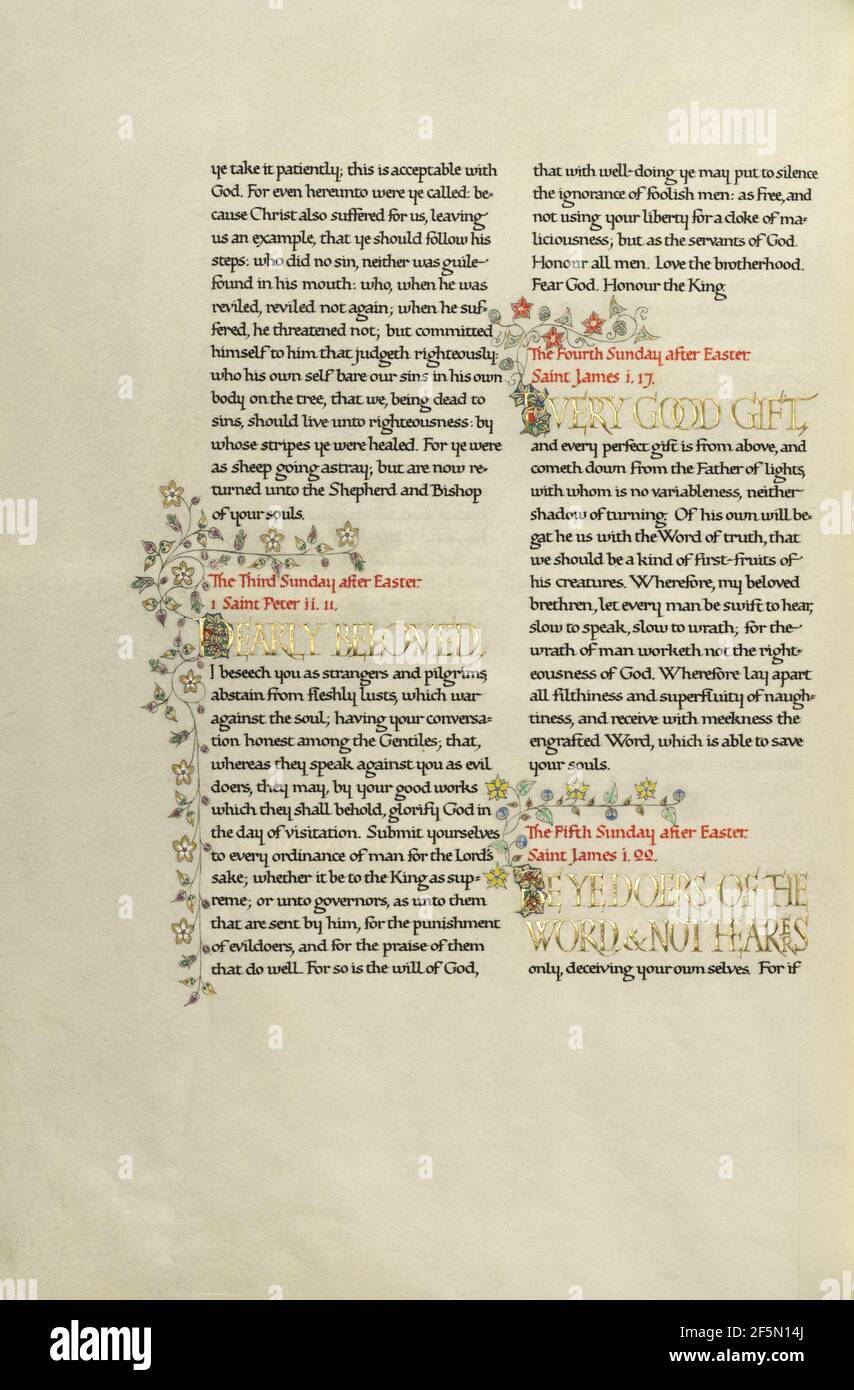 ye take it patiently; this is acceptable with
God. For even hereunto were ye called: be-
cause Christ also suffered for us, leaving
us an example, that ye should follow his
steps: who did no sin, neither was guile
found in his mouth: who, when he was
reviled, reviled not again; when he suf-
fered, he threatened not; but committed
himself to him that judgeth righteously:
who his own self bare our sins in his own
body on the tree, that we, being dead to
sins, should live unto righteousness: by
whose stripes ye were healed. For ye were
as sheep going astray; but are now re-
turned unto the Shepherd and Bishop
of your souls.
The Third Sunday after Easter.
1 Saint Peter ii. 11.
DEARLY BELOVED,
I beseech you as strangers and pilgrims,
abstain from fleshly lusts, which war
against the soul; having your conversa-
tion honest among the Gentiles; that,
whereas they speak against you as evil
doers, they may, by your good works
which they shall behold, glorify God in
the day of visitation. Submit yourselves
to every ordinance of man for the Lord's
sake; whether it be to the King as sup-
reme; or unto governors, as unto them
that are sent by him, for the punishment
of evildoers, and for the praise of them
that do well. For so is the will of God,
that with well-doing ye may put to silence
the ignorance of foolish men: as free, and
not using your liberty for a cloke of ma-
liciousness; but as the servants of God.
Honour all men. Love the brotherhood.
Fear God. Honour the King.
The Fourth Sunday after Easter.
Saint James i. 17.
EVERY GOOD GIFT,
and every perfect gift is from above, and
cometh down from the Father of lights,
with whom is no variableness, neither
shadow of turning. Of his own will be-
gat he us with the Word of truth, that
we should be a kind of first-fruits of
his creatures. Wherefore, my beloved
brethren, let every man be swift to hear,
slow to speak, slow to wrath; for the
wrath of man worketh not the right-
eousness of God. Wherefore lay apart
all filthiness and superfluity of naugh-
tiness, and receive with meekness the
engrafted Word, which is able to save
your souls.
The Fifth Sunday after Easter.
Saint James i. 22.
BE YE DOERS OF THE
WORD, & NOT HEARERS
only, deceiving your own selves. For if
alamy
Image ID: 2F5N14J
www.alamy.com